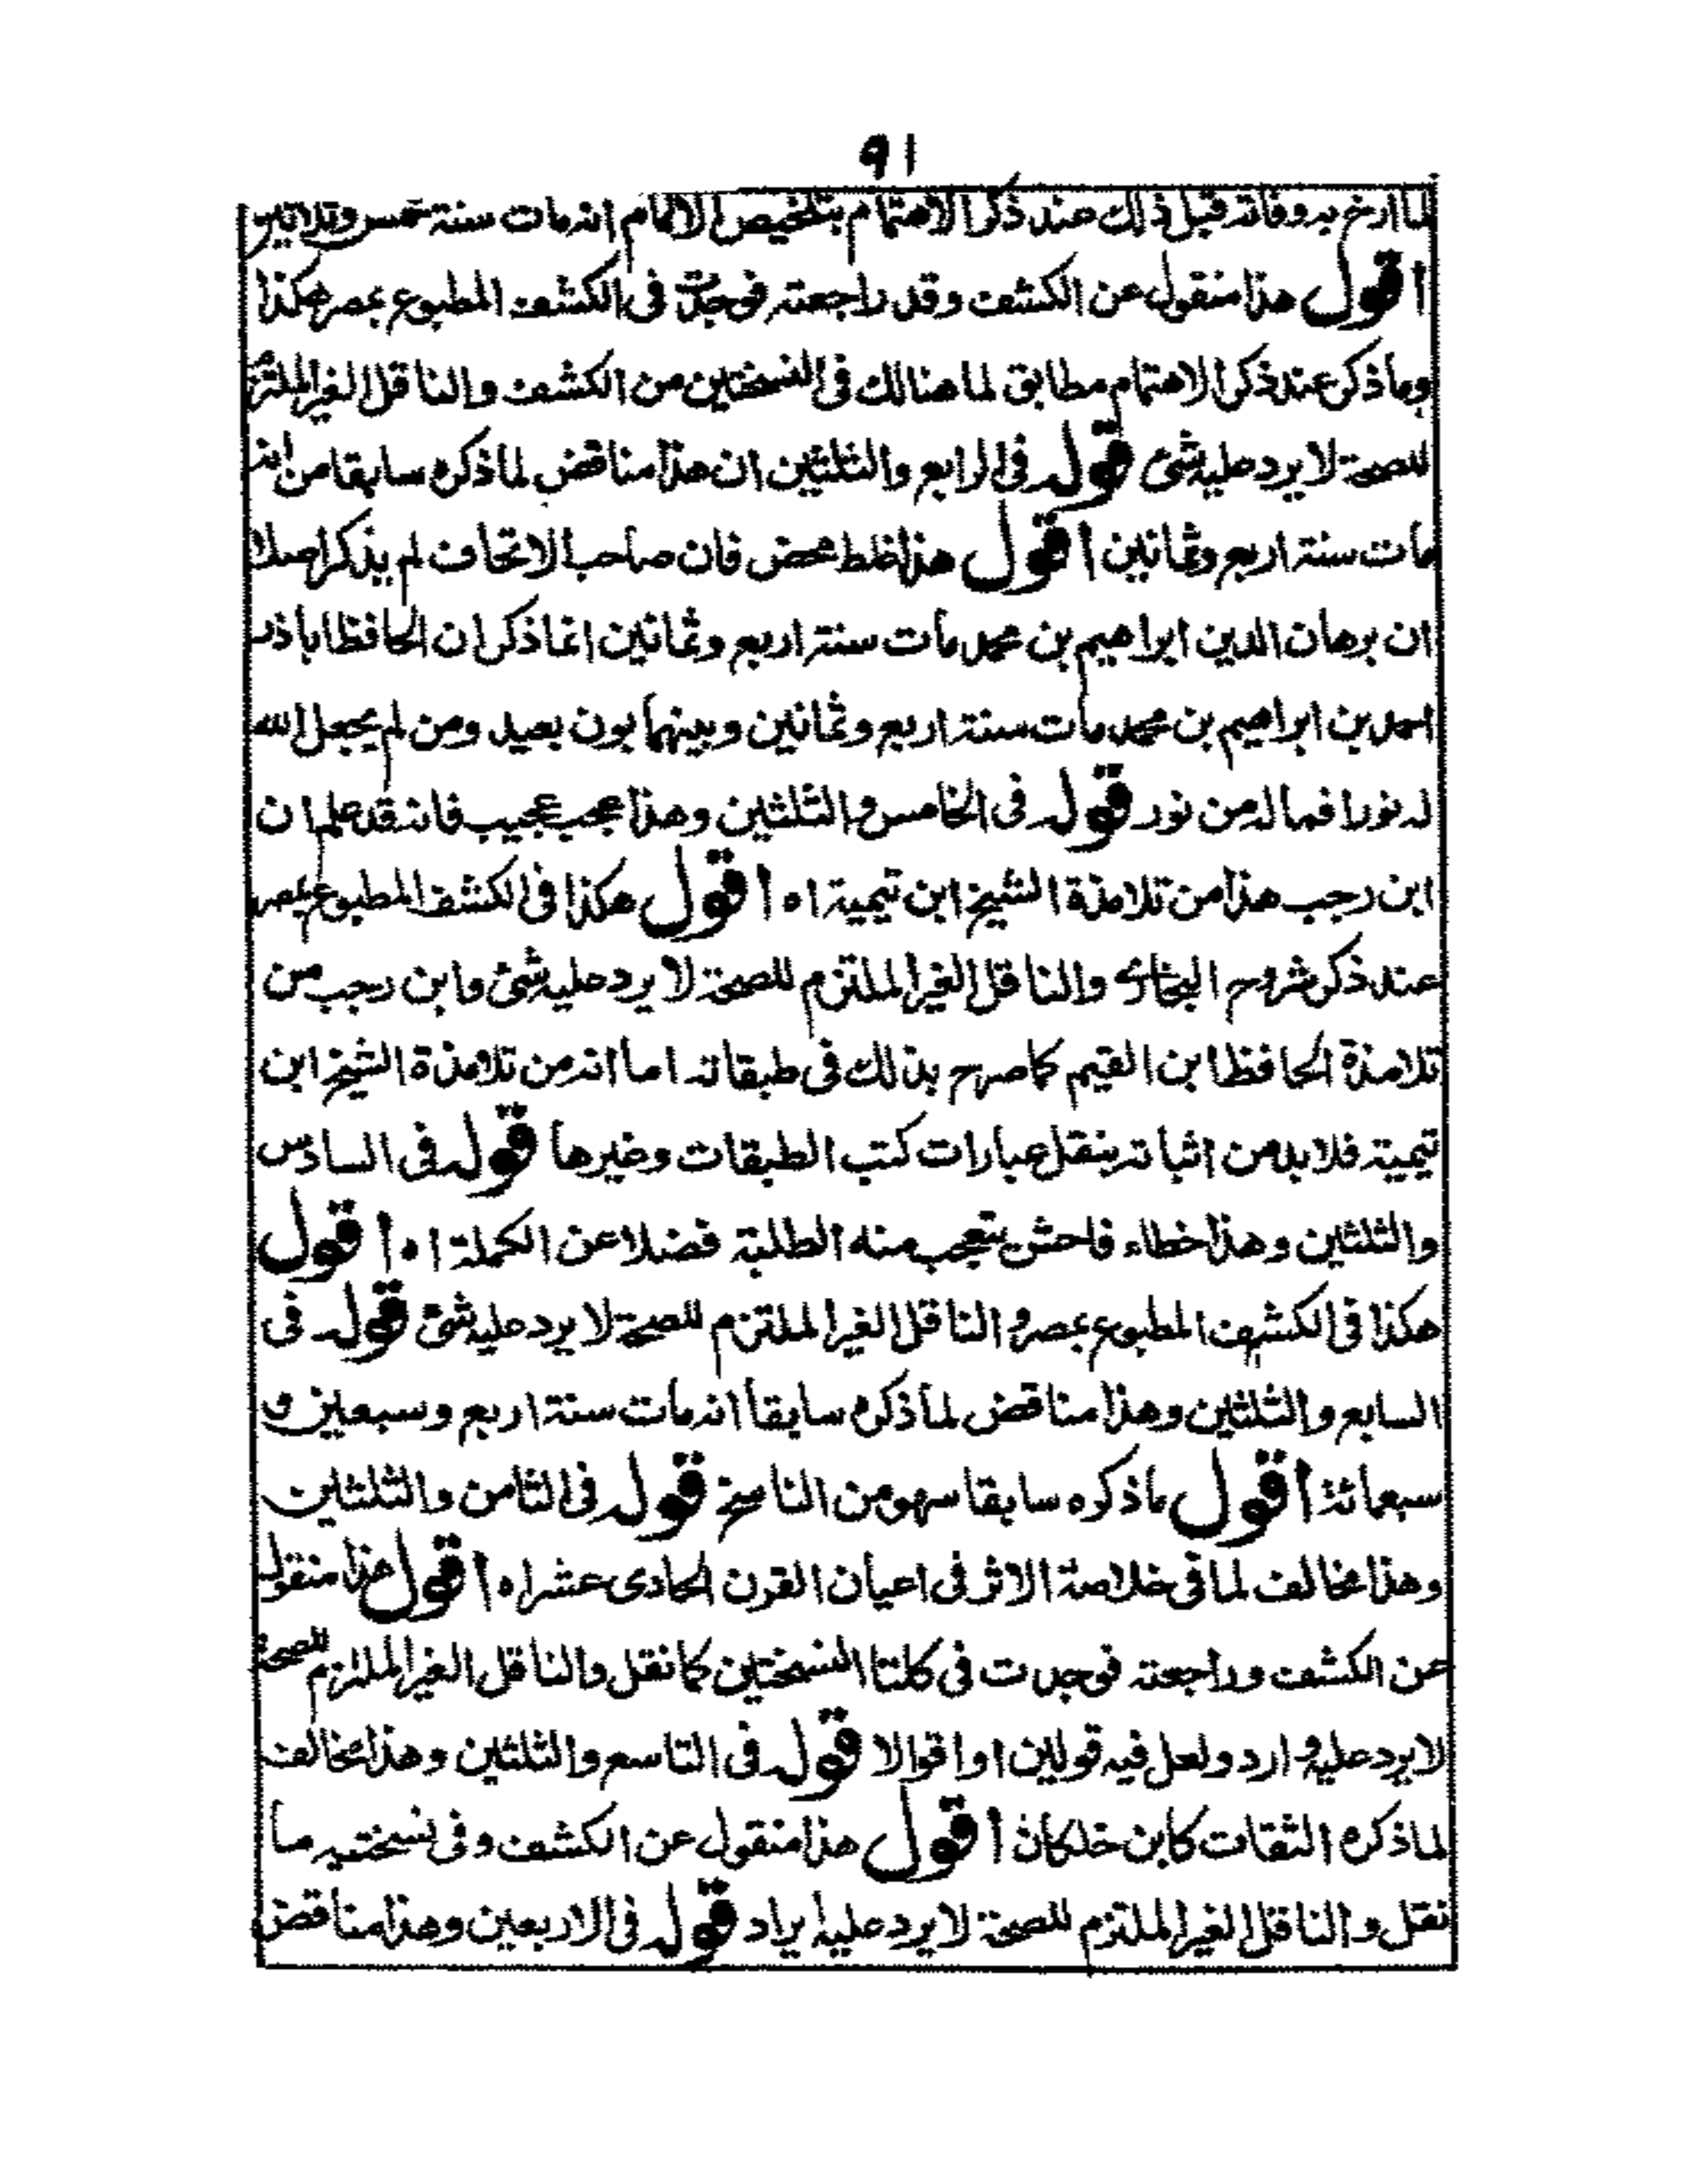 ٩١
لما ارخ به وفاته قبل ذلك عند ذكر الاهتمام بتلخيص الالمام انه مات سنة خمس وثلاثين
اقول هذا منقول عن الكشف وقد راجعته فوجدت فى الكشف المطبوع بمصر هكذا
وما ذكر عند ذكر الاهتمام مطابق لما هنالك فى النسختين من الكشف والناقل الغير الملتزم
للصحة لا يرد عليه شئ قوله فى الرابع والثلثين ان هذا مناقض لما ذكره سابقا من انه
مات سنة اربع وثمانين اقول هذا غلط محض فان صاحب الاتحاف لم يذكر اصلا
ان برهان الدين ابراهيم بن محمد مات سنة اربع وثمانين انما ذكر ان الحافظ ابا ذر
احمد بن ابراهيم بن محمد مات سنة اربع وثمانين وبينهما بون بعيد ومن لم يجعل الله
له نورا فما له من نور قوله فى الخامس والثلثين وهذا عجب عجيب فانه قد علم ان
ابن رجب هذا من تلامذة الشيخ ابن تيمية اه اقول هكذا فى الكشف المطبوع بمصر
عند ذكر شروح البخارى والناقل الغير الملتزم للصحة لا يرد عليه شئ وابن رجب من
تلامذة الحافظ ابن القيم كما صرح بذلك فى طبقاته اما انه من تلامذة الشيخ ابن
تيمية فلا بد من اثباته بنقل عبارات كتب الطبقات وغيرها قوله فى السادس
والثلثين وهذا خطاء فاحش يتعجب منه الطلبة فضلا عن الكملة اه اقول
هكذا فى الكشف المطبوع بمصر والناقل الغير الملتزم للصحة لا يرد عليه شئ قوله فى
السابع والثلثين وهذا مناقض لما ذكره سابقا انه مات سنة اربع وسبعين و
سبعمائة اقول ما ذكره سابقا سهو من الناسخ قوله فى الثامن والثلثين
وهذا مخالف لما فى خلاصة الاثر فى اعيان القرن الحادى عشر اه اقول هذا منقول
عن الكشف وراجعته فوجدت فى كلتا النسختين كما نقل والناقل الغير الملتزم للصحة
لا يرد عليه وارد ولعل فيه قولين او اقوالا قوله فى التاسع والثلثين وهذا مخالف
لما ذكره الثقات كابن خلكان اقول هذا منقول عن الكشف وفى نسختيه ما
نقل والناقل الغير الملتزم للصحة لا يرد عليه ايراد قوله فى الاربعين وهذا مناقض